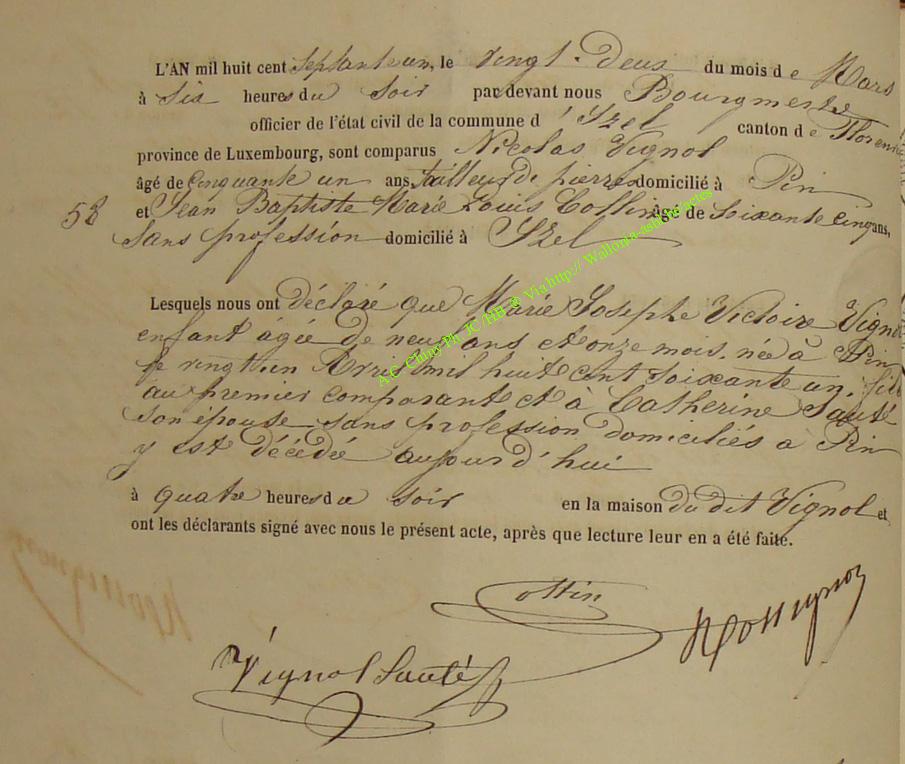 L'AN mil huit cent septante un, le vingt-deux du mois de Mars
à six heures du soir par devant nous Bourgmestre
officier de l'état civil de la commune d'Izel canton de Florenville
province de Luxembourg, sont comparus Nicolas Vignol
âgé de Cinquante un ans, tailleur de pierres domicilié à Pin
58 et Jean Baptiste Marie Louis Collin âgé de soixante cinq ans,
sans profession domicilié à Izel
Lesquels nous ont déclaré que Marie Josephe Victoire Vignol
enfant âgée de neuf ans et onze mois, née à Pin
le vingt un Avril mil huit cent soixante un fille
au premier comparant et à Catherine Sauté
son épouse sans profession domiciliés à Pin
y est décédée aujourd'hui
à quatre heures du soir en la maison du dit Vignol et
ont les déclarants signé avec nous le présent acte, après que lecture leur en a été faite.
Vignol Sauté
A.C. Chiny Ph. JC /HH @ Via http:// Wallonia-asbl.be/actes